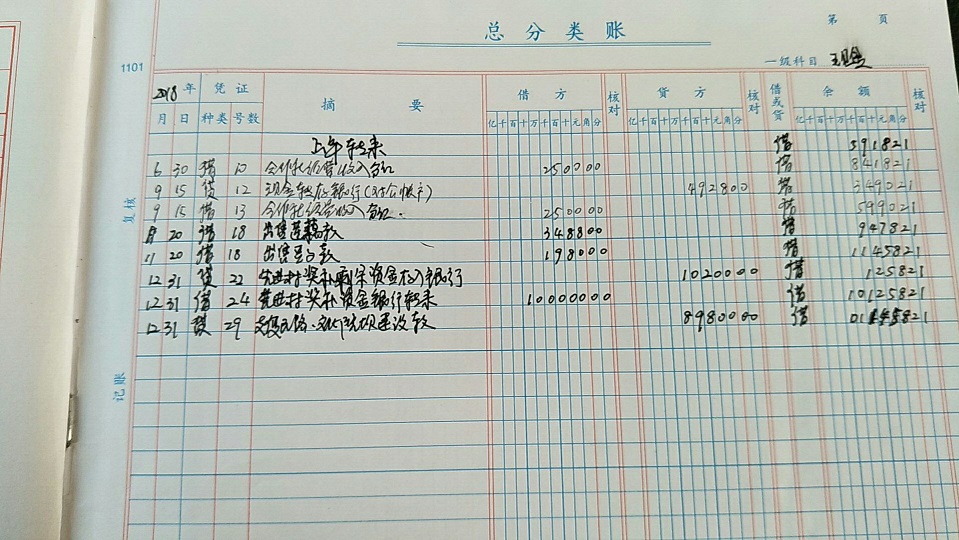 总分类账
第 页
一级科目 现金
1101
2018年 凭证 摘要 借方 核对 贷方 核对 借或贷 余额 核对
月 日 种类 号数 亿千百十万千百十元角分 亿千百十万千百十元角分 亿千百十万千百十元角分
上年转来 借 591821
6 30 借 10 合作社经营收入 250000 借 841821
9 15 贷 12 现金转存银行(对公帐户) 492800 借 349021
9 15 借 13 合作社经营收入 250000 借 599021
20 借 18 出售莲藕款 348800 借 947821
11 20 借 18 出售 款 198000 借 1145821
12 31 贷 22 先进村奖补剩余资金存入银行 1020000 借 125821
12 31 借 24 先进村奖补资金银行转来 10000000 借 10125821
12 31 贷 29 建设款 8980000 借
复核
记账